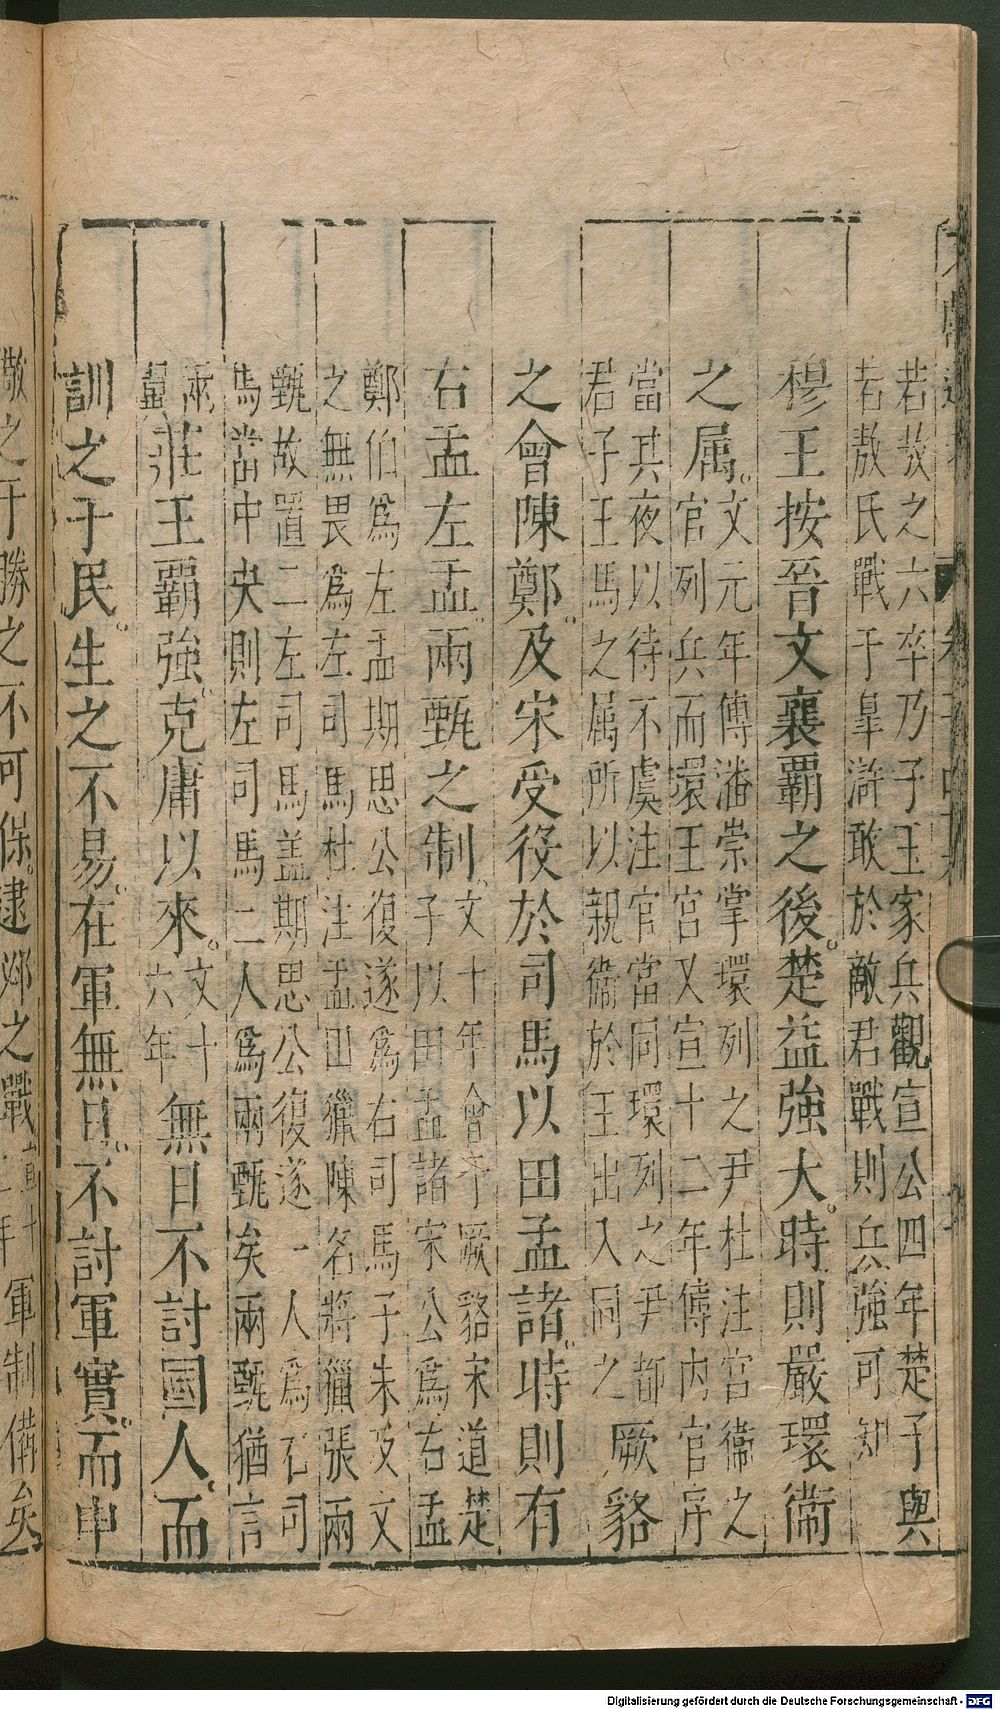 若敖之六卒乃子玉家兵觀宣公四年楚子與
若敖氏戰于皐滸敢於敵君戰則兵強可知
穆王按晉文襄覇之後楚益強大時則嚴環衛
之属文元年傅潘崇掌環列之尹杜注宫衛之
官列兵而環王宫又宣十二年傅内官序
當其夜以待不虞注官當同環列之尹都
君子王馬之属所以親衛於王出入同之
厥貉
之會陳鄭及宋受役於司馬以田孟諸時則有
右盂左盂兩甄之制文十年會于厥貉宋道楚
子以田孟諸宋公爲右盂
鄭伯爲左盂期思公復遂爲右司馬子朱及文
之無畏爲左司馬杜注盂田獵陳名將獵張兩
甄故置二左司馬盖期思公復遂一人爲右司
馬當中央則左司馬二人爲兩甄矣兩甄猶言
兩
翼
莊王覇強克庸以來文十
六年
無日不討國人而
訓之于民生之不易在軍無日不討軍實而申
儆之于勝之不可保逮邲之戰
軍制備矣
Digitalisierung gefördert durch die Deutsche Forschungsgemeinschaft - DFG